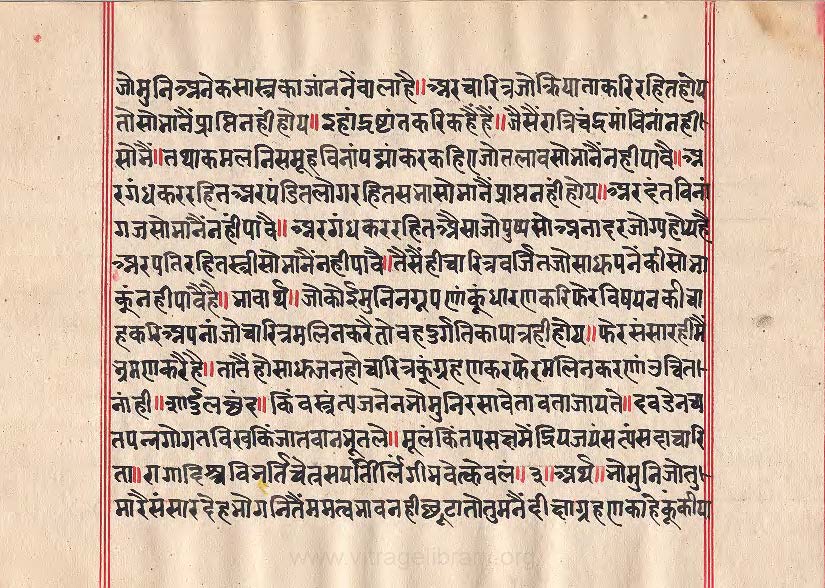 जोमुनिअनेकसास्त्रकाजांननैंवालाहै॥अरचारित्रजोक्रियाताकरिरहितहोय
तोसोभानैंप्राप्तिनहींहोय॥इहांद्रष्टांतकरिकहैंहैं॥जैसैंरात्रिचंद्रमांविनांनही
सोभैं॥तथाकमलनिसमूहविनांपद्माकरकहिएजोतलावसोभानैंनहीपावै॥अ
रगंधकररहितअरपंडितलोगरहितसभासोभानैंप्राप्तनहींहोय॥अरदंतविनां
गजसोभानैंनहींपावै॥अरगंधकररहितअैसाजोपुष्पसोअनादरजोग्यहोयहै
अरपतिरहितस्त्रीसोभानैंनहीपावै॥तैसैंहीचारित्रवर्जितजोसाधुपनेकीसोभा
कूंनहीपावैहै॥भावार्थ॥जोकोईमुनिनग्नपणांकूंधारणकरिफेरविषयनकीचा
हकरिअपनांजोचारित्रमलिनकरैतोवहदुर्गतिकापात्रहीहोय॥फेरसंसारहीमैं
भ्रमणकरैहै॥तातैंहोसाधुजनहोचारित्रकूंग्रहणकरफेरमलिनकरणांउचित
नांही॥शार्दुलछंद॥किंवस्त्रंत्यजनेनभोमुनिरसावेतावताजायते॥
मूलंकिंतपसक्षमेंद्रियजयंसत्यंसदाचारि
ता॥रागादिंश्च॥३॥अर्थ॥भोमुनिजोतु
मारैसंसारदेहभोगनितैंममत्वभावनहीछूटातोतुमनैंदीक्षाग्रहणकाहेकूंकीपा
www.vitragelibrary.org